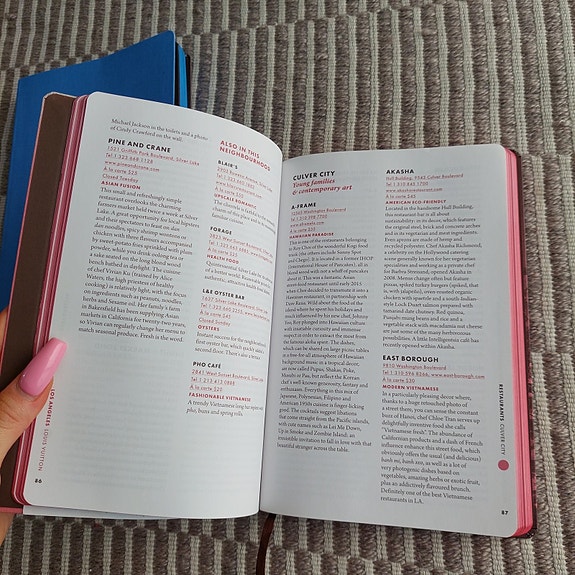 Michael Jackson in the toilets and a photo
of Cindy Crawford on the wall.
PINE AND CRANE
1521 Griffith Park Boulevard, Silver Lake
Tel 1 323 668 1128
www.pineandcrane.com
À la carte $25
Closed Tuesday
ASIAN FUSION
This small and refreshingly simple
restaurant overlooks the charming
farmers market held twice a week at Silver
Lake. A great opportunity to feed hipsters
and their spectators to feast on dan
dan noodles, spicy shrimp wontons, or
chicken with three flavours accompanied
by sweet-potato fries sprinkled with plum
powder, while seated on the long
bench bathed in daylight. The cuisine
of chef Vivian Ku (trained by Alice
Waters, the high priestess of healthy
cooking) is relatively light, with the focus
on ingredients such as peanuts, noodles,
herbs and Sesame oil. Her family's farm
in Bakersfield has been supplying Asian
markets in California for twenty-two years,
so Vivian can regularly change her menu to
match seasonal produce. Fresh is the word.
ALSO IN THIS
NEIGHBOURHOOD
BLAIR'S
2903 Rowena Avenue, Silver Lake
UPSCALE ROMANTIC
FORAGE
HEALTH FOOD
L&E OYSTER BAR
1637 Silver Lake Boulevard
À la carte $50
Closed Sunday
OYSTERS
Instant success for the neighbourhood's first
oyster bar, which quickly added a
second floor. There's also a terrace
PHO CAFÉ
2841 West Sunset Boulevard, Silver Lake
Tel 1 213 413 0888
À la carte $20
FASHIONABLE VIETNAMESE
A trendy Vietnamese long bar
pho, buns and spring rolls.
LOS ANGELES LOUIS VUITTON
86
CULVER CITY
Young families
& contemporary art
A-FRAME
12565 Washington Boulevard
Tel 1 310 398 7700
www.aframela.com
À la carte $35
HAWAIIAN PARADISE
This is one of the restaurants belonging
to Roy Choi of the wonderful Kogi food
truck (the others include Sunny Spot
and Chego!). It is located in a former IHOP
(International House of Pancakes), all in
local wood with not a whiff of pancakes
about it. This was a fantastic Asian
street-food restaurant until early 2015
when Choi decided to transform it into a
Hawaiian restaurant, in partnership with
Dave Raau. Wild about the food of the
island where he spent his holidays and
much influenced by his new chef, Johnny
Yoo, Roy plunged into Hawaiian culture
with insatiable curiosity and immense
respect in order to extract the most from
the famous aloha spirit. The dishes,
which can be shared on large picnic tables
in a free-for-all atmosphere of Hawaiian
background music in a tropical decor,
are now called Pupus, Shakas, Poke,
Musubi or Pau, but reflect the Korean
chef's well known generosity, fantasy and
enthusiasm. Everything in this mix of
Japanese, Polynesian, Filipino and
American 1950s cuisine is finger-licking
good. The cocktails suggest libations
that come straight from the Pacific islands,
with cute names such as Lei Me Down,
Up in Smoke and Zombie Island: an
irresistible invitation to fall in love with that
beautiful stranger across the table.
AKASHA
Hull Building, 9543 Culver Boulevard
Tel 1 310 845 1700
www.akasharestaurant.com
À la carte $45
AMERICAN ECO-FRIENDLY
Located in the handsome Hull Building,
this restaurant-bar is all about
sustainability: in its decor, which features
the original steel, brick and concrete arches
and in its vegetarian and meat ingredients.
Even aprons are made of hemp and
recycled polyester. Chef Akasha Richmond,
a celebrity on the Hollywood catering
scene generally known for her vegetarian
specialties and seeking as a private chef
for Barbra Streisand, opened Akasha in
2008. Menus change often but feature
pizzas, baked turkey burgers (spiked, that
is, with jalapeño), oven-roasted organic
chicken with spätzle and a south-Indian-
style Jack Duart salmon prepared with
tamarind date chutney. Red quinoa,
Punjabi mung bean rice and a
vegetable stack with macadamia nut cheese
are just some of the many herbivorous
possibilities. A little Intelligentsia café has
recently opened within Akasha.
EAST BOROUGH
9810 Washington Boulevard
Tel 1 310 596 8266, www.east-borough.com
À la carte $30
MODERN VIETNAMESE
In a particularly pleasing decor where,
thanks to a huge retouched photo of
a street there, you can sense the constant
buzz of Hanoi, chef Chloe Tran serves up
delightfully inventive food she calls
"Vietnamese fresh". The abundance of
Californian products and a dash of French
influence enhance this street food, which
obviously offers the usual (and delicious)
banh mi, banh xeo, as well as a lot of
very photogenic dishes based on
vegetables, amazing herbs or exotic fruit,
plus an addictively flavoured brunch.
Definitely one of the best Vietnamese
restaurants in L.A.
RESTAURANTS CULVER CITY
87